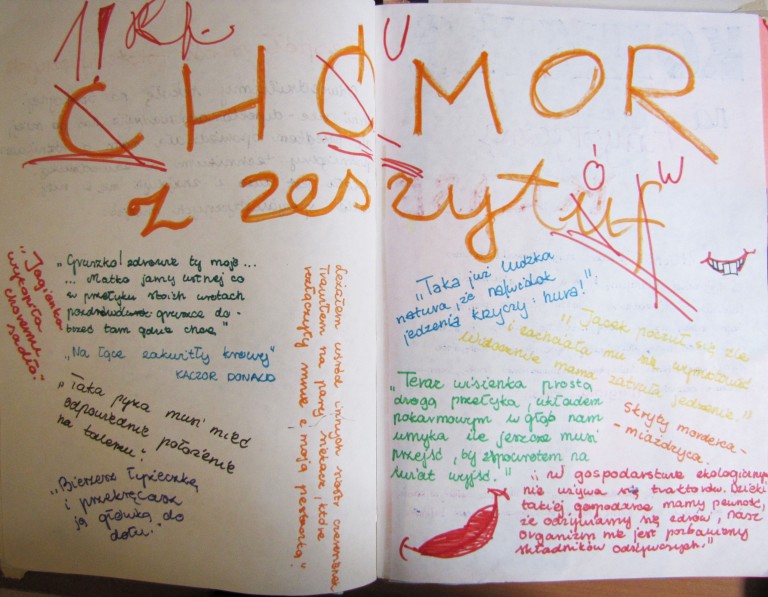 CHOMOR
U
z zeszytuf
Ó W
"Jagienka
wytopiła
choremu
sadła."
"Gruszko! zdrowie ty moje...
... Matko jamy ustnej co
w przełyku stoisz wrotach
gruszce do-
trzeć tam gdzie chcę."
"Na łące zakwitły krowy"
KACZOR DONALD
"Taka pyza musi mieć
odpowiednie położenie
na talerzu."
"Bierzesz łyżeczkę
i przekręcasz
ją główką do
dołu."
Leżałem wśród innych roślin
Trafiłem na parę mieszacz, które
rozłączyły mnie z moją pestką."
"Taka już ludzka
natura, że na widok
jedzenia krzyczy: hura!"
"Jacek poczuł się źle
i zachciało mu się wymiotować
Widocznie mama zatruła jedzenie."
"Teraz wisienka prostą
drogą przełyka, układem
pokarmowym w głąb nam
umyka ile jeszcze musi
przejść, by z powrotem na
świat wyjść."
skryty morderca -
- miażdżyca.
"W gospodarstwie ekologicznym
nie używa się traktorów. Dzięki
takiej gospodarce mamy pewność,
że odżywiamy się zdrowo, nasz
organizm nie jest pozbawiony
składników odżywczych."